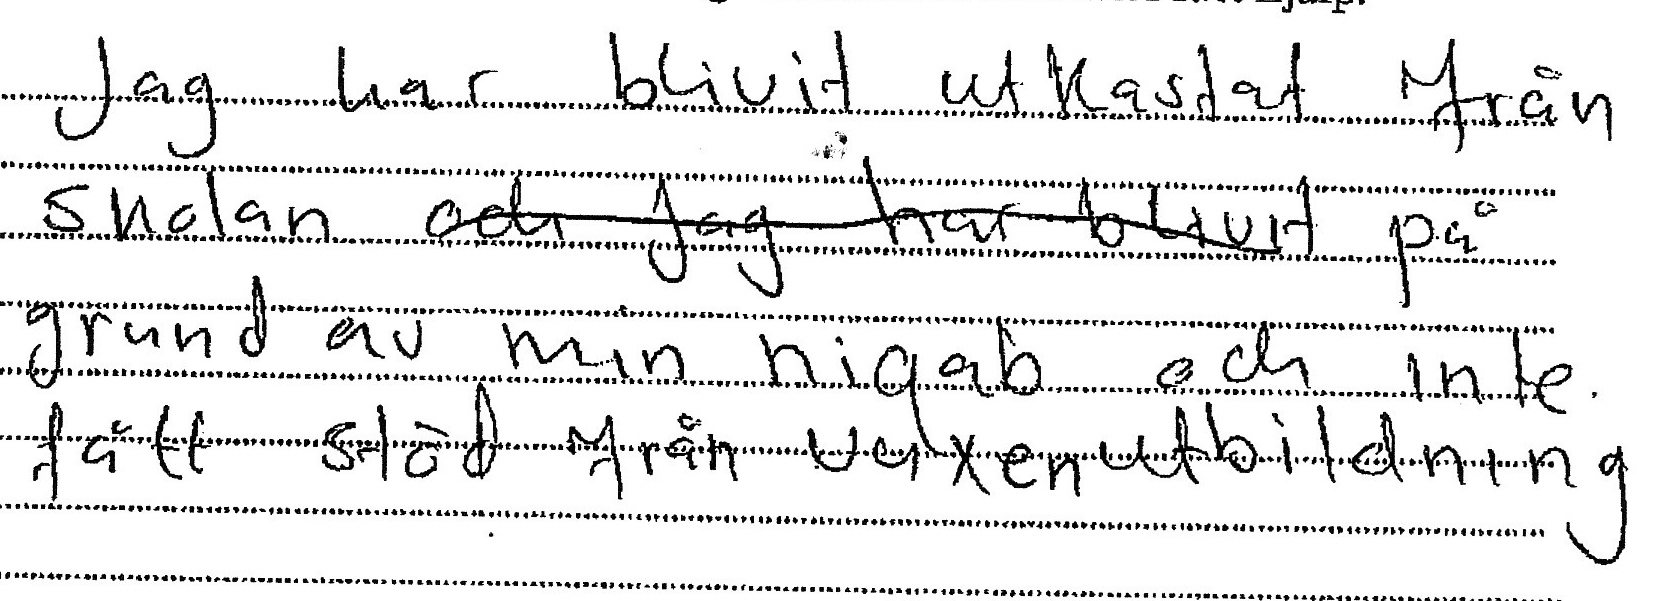 hjälp.
Jag har blivit utkastat från
skolan och jag har blivit på
grund av min niqab och inte.
fått stöd från vuxenutbildning